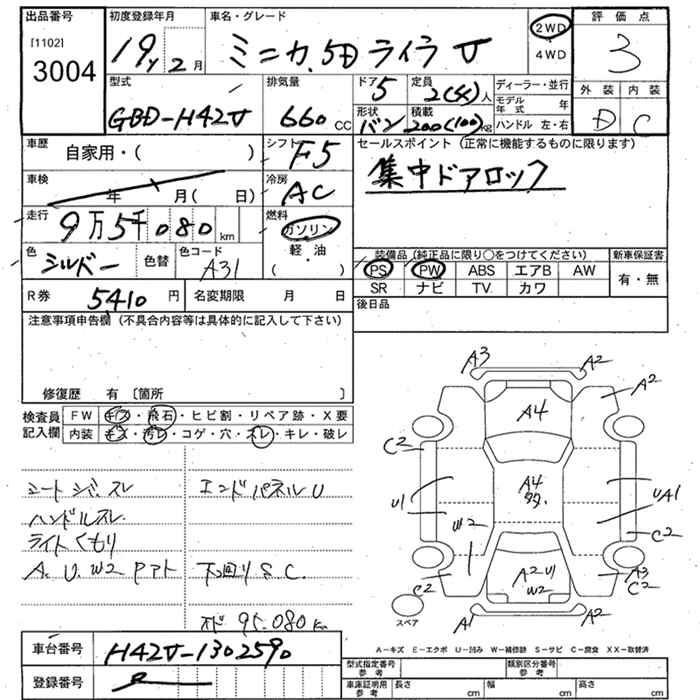 出品番号 初度登録年月 車名・グレード 2WD 評価点
[1102] 19y 2月 ミニカ.5D ライラ V 4WD 3
3004
型式 排気量 ドア 5 定員 2(4)人 ディーラー・並行 外装 内装
GBD-H42V 660cc 形状 バン 積載 200(100)kg モデル年式 年 D C
ハンドル 左・右
車歴 自家用・( ) シフト F5 セールスポイント (正常に機能するものに限ります)
車検 年 月( 日) 冷房 AC 集中ドアロック
走行 9万5千080km 燃料 ガソリン
軽・油
( )
色 シルバー 色替 色コード A31 装備品(純正品に限り○をつけてください) 新車保証書
PS PW ABS エアB AW 有・無
R券 5410円 名変期限 月 日 SR ナビ TV カワ
後日品
注意事項申告欄(不具合内容等は具体的に記入して下さい)
修復歴 有 〔箇所 〕
検査員 FW キズ・飛石・ヒビ割・リペア跡・X要
記入欄 内装 キズ・汚レ・コゲ・穴・スレ・キレ・破レ
シートシバ、スレ エンドパネルU
ハンドルスレ
ライトくもり
A. U. W2 アアト 下回りS.C.
メーター 95.080km
A3 A2
A4 A2
C2
U1 A4 多. UA1
W2 C2
C2 A2 U1 W2 A3 C2
スペア A1 A2
A-キズ E-エクボ U-凹み W-補修跡 S-サビ C-腐食 XX-取替済
車台番号 H42V-1302590
登録番号
型式指定番号 参考 類別区分番号 参考
車庫証明用 参考 長さ cm 幅 cm 高さ cm